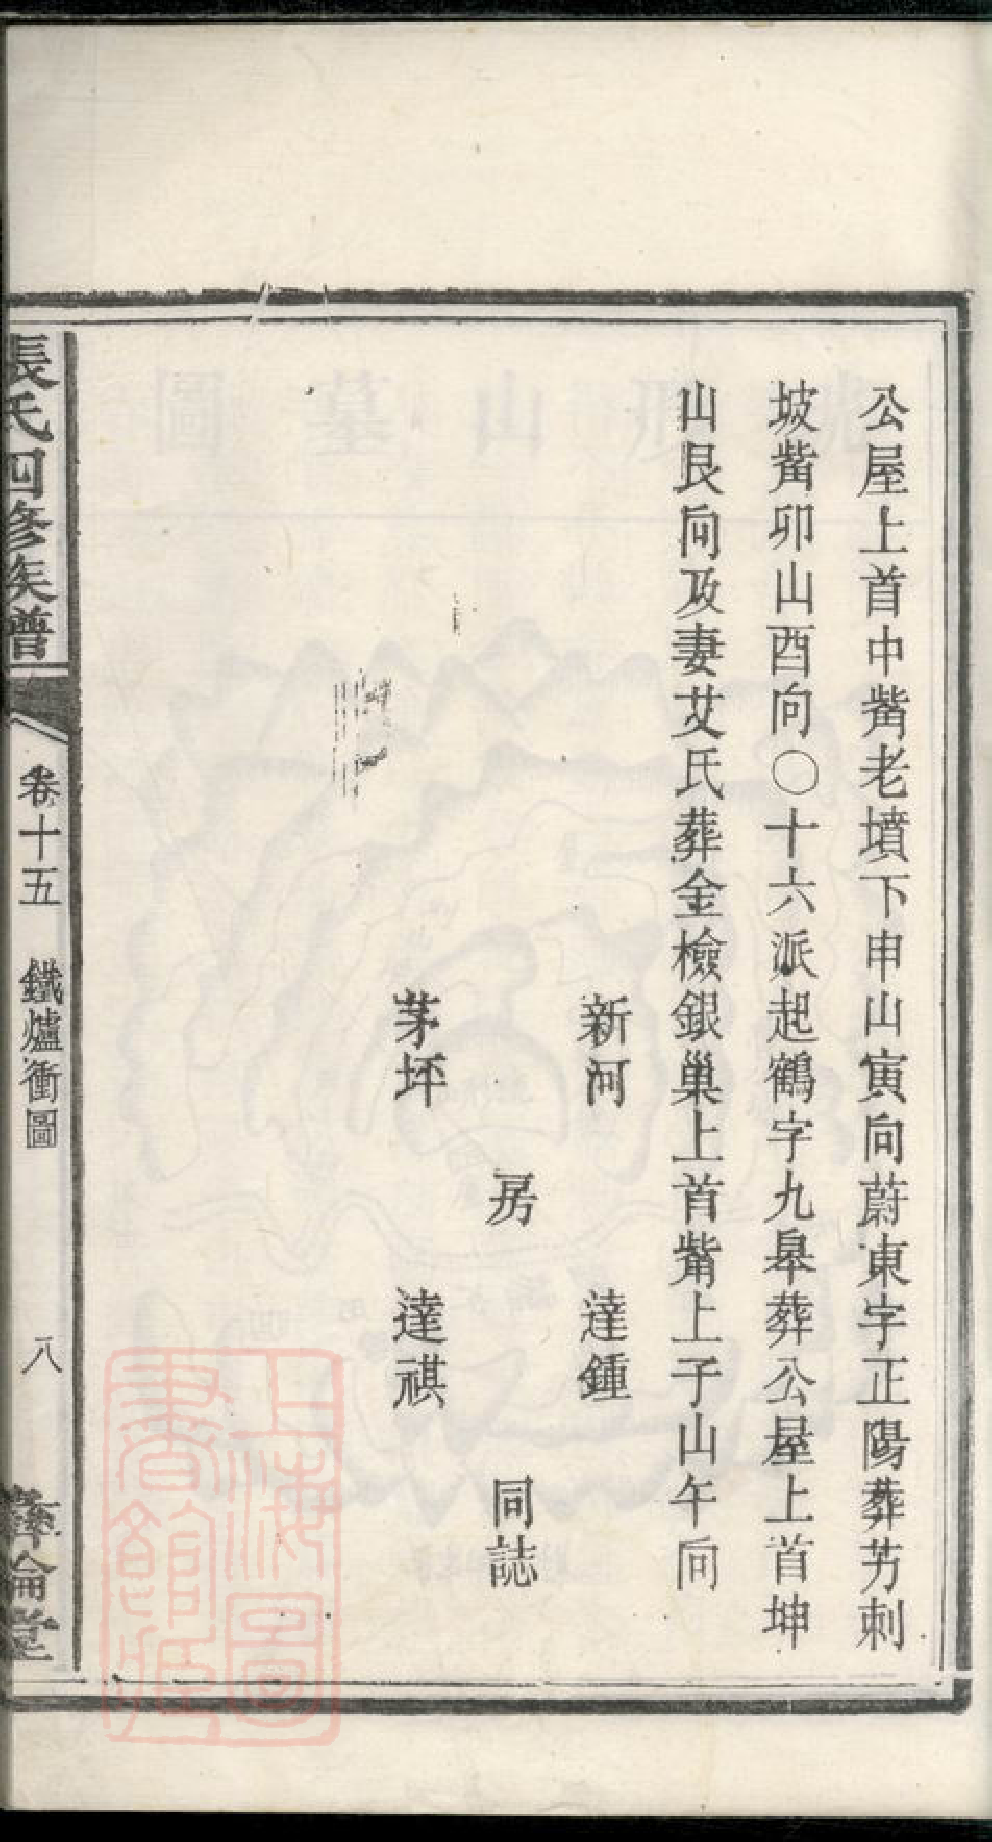 公屋上首中觜老墳下申山寅向蔚東字正陽葬艻刺
坡觜卯山酉向〇十六派起鶴字九臯葬公屋上首坤
山艮向及妻艾氏葬金檢銀巢上首觜上子山午向
新河　達鍾
房　同誌
茅坪　達祺
張氏四修族譜　卷十五　鐵爐衝圖　八　彝倫堂
上海圖
書館藏